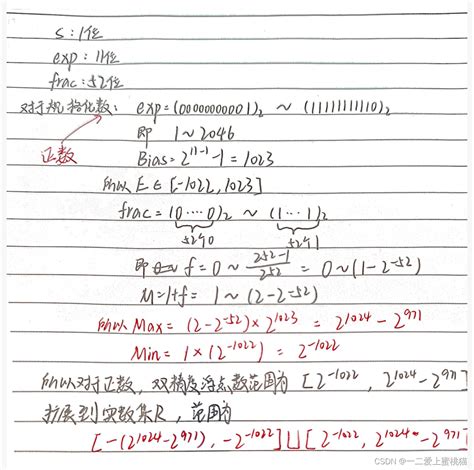 s:1位
exp:11位
frac:52位
对于规格化数: exp=(00000000001)₂ ~ (11111111110)₂
正数
即 1~2046
Bias=2^{11-1}-1=1023
所以 E∈[-1022,1023]
frac=(0····0)₂ ~ (1···1)₂
52个0 52个1
即 f=0~\frac{2^{52}-1}{2^{52}} = 0~(1-2^{-52})
M=1+f= 1~(2-2^{-52})
所以 Max= (2-2^{-52})×2^{1023} = 2^{1024}-2^{971}
Min= 1×(2^{-1022})= 2^{-1022}
所以对于正数,双精度浮点数范围为[2^{-1022}, 2^{1024}-2^{971}]
扩展到实数集R,范围为
[-(2^{1024}-2^{971}), -2^{-1022}]⋃[2^{-1022}, 2^{1024}-2^{971}]
CSDN @一二爱上蜜桃猫